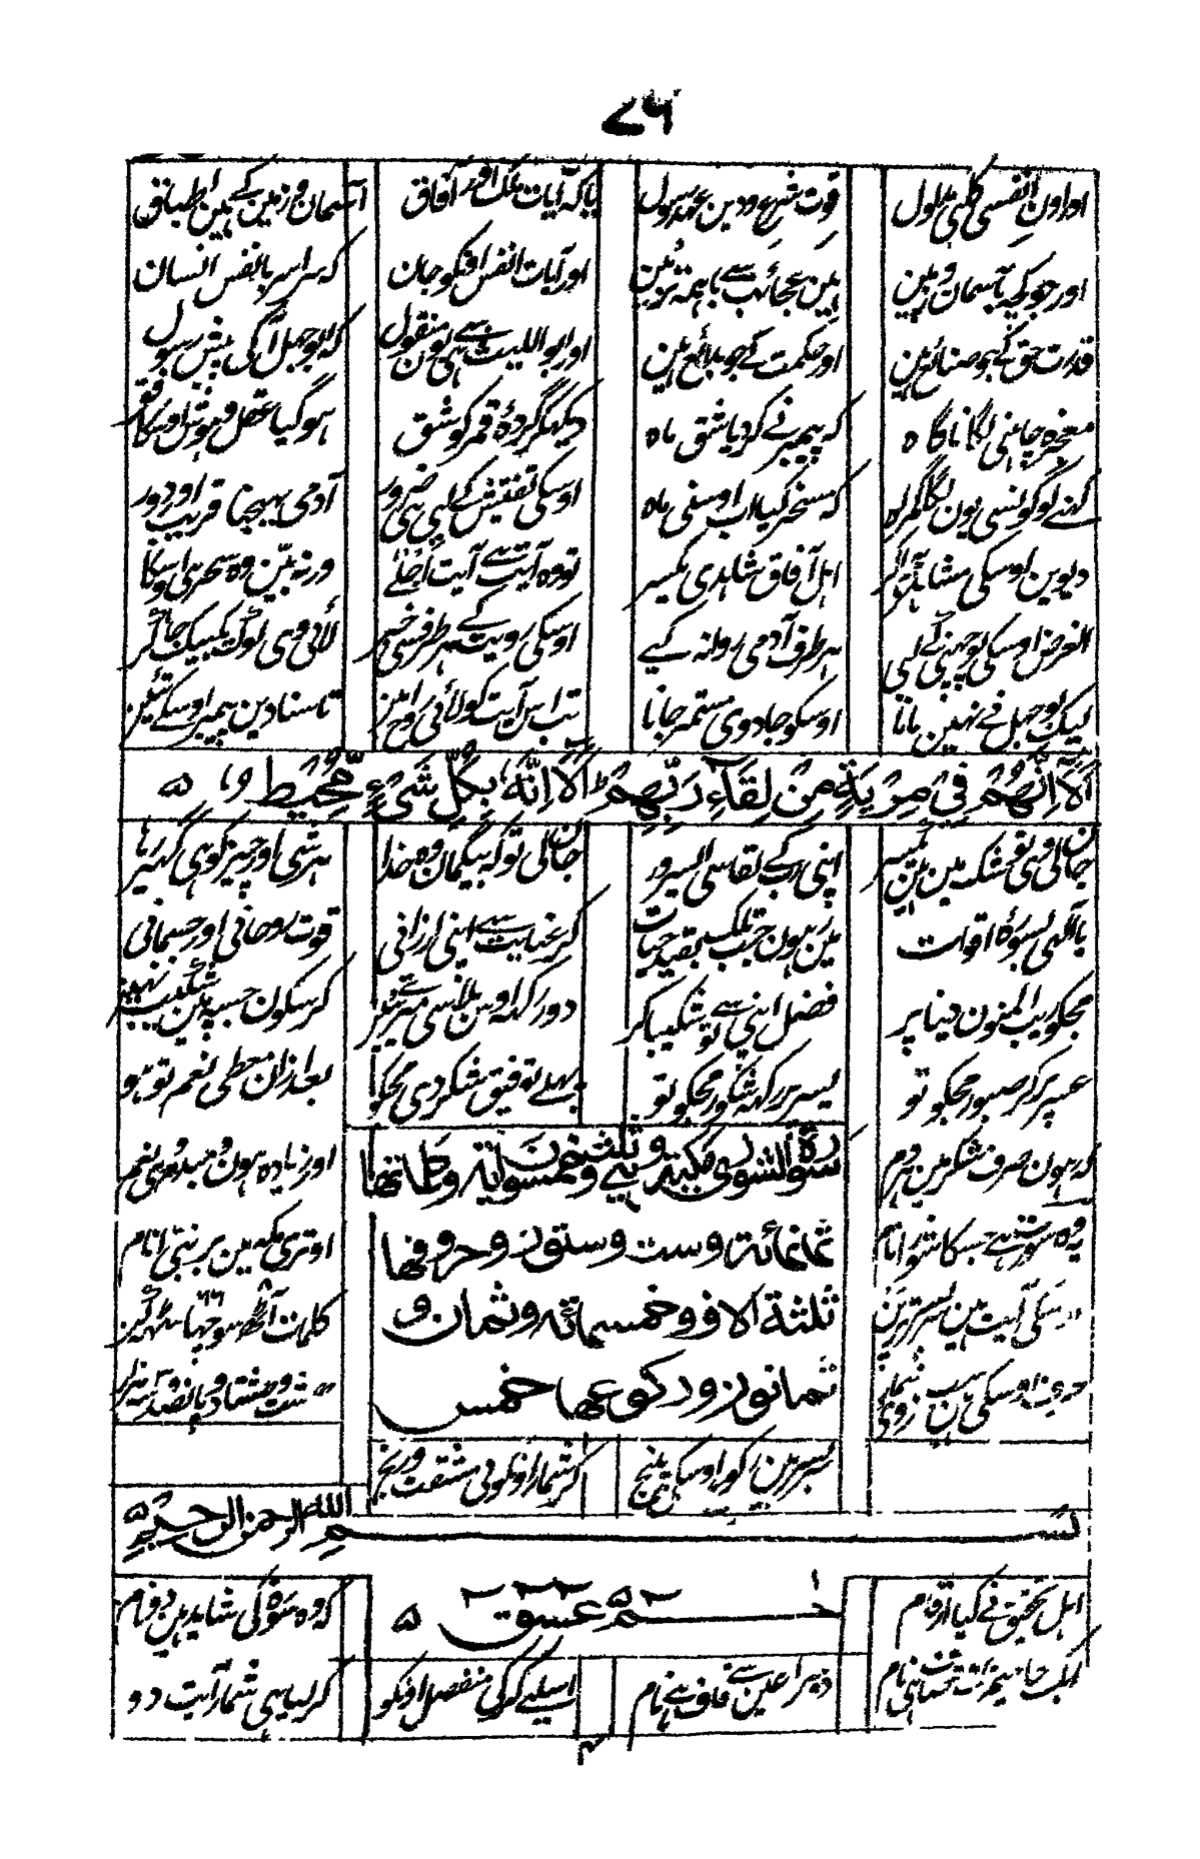 ۷۶
اور اون انفسی کی ہی مدلول
قوت شرع و دین عہد رسول
یا کہ آیات ملک اور آفاق
آسمان و زمین کے ہین اطباق
اور جو کچھ بآسمان و زمین
ہین عجائب سے باہمہ تزئین
اور آیات انفس اونکو جان
کہ سراسر بانفس انسان
قدرت حق کے جو صنائع ہین
اور حکمت کے جو بدائع ہین
اور ابو اللیث سے ہی یون منقول
کہ ابوجہل آ کی پیش رسول
معجزہ چاہنی لگا ناگاہ
کہ پیمبر نے کر دیا شق ماہ
دیکھکر کردۂ قمر کو شق
ہو گیا عقل و ہوش اوسکا
کہنے لوگونسی یون لگا گمراہ
کہ سحر کیا اب اوسنی ماہ
اوسکی تفتیش کے لیی ہی ضرور
آدمی بھیجنا قریب اور دور
دیوین اوسکی مشاہدہ گر
اہل آفاق شاہدی یکسر
تو وہ آیت ہے آیت اجلے
ورنہ بین وہ سحر ہی اوسکا
الغرض اوسکی پوچھنے کے لیی
ہر طرف آدمی روانہ کیے
اوسکی رویت کے ہر طرفسی خبر
لائی وی لوگ یکبیک جا کر
لیک بوجہل نے نہین مانا
اوسکو جادوی مستمر جانا
تب اس آیت کو لائی روح امین
تا سنا دین پیمبر اوسکے تئین
اَلَآ اِنَّهُمْ فِيْ مِرْيَةٍ مِّنْ لِّقَآءِ رَبِّهِمْ ؕ اَلَآ اِنَّهٗ بِكُلِّ شَيْءٍ مُّحِيْطٌ
جان لی وی تو شک مین ہین یکسر
اپنی رب کے لقاسی
جان لی تو کہ بیگمان وہ خدا
ہر شی اور چیز کو ہی گھیر رہا
یا الہی بسورۂ اقوات
مین رہون جب تلک بقید حیات
کر عنایت سے اپنی ارزانی
قوت روحانی اور جسمانی
مجکو ریب المنون دنیا پر
فضل اپنی سے تو شکیبا کر
دور رکھ اوس بلا سی میرے تئین
کر سکون جسپہ مین شکیب نہین
عسر پر کر صبور مجکو تو
یسر پر رکھ شکور مجکو تو
پہلے توفیق شکر دی مجکو
بعد ازان معطی نعم تو ہو
ہون صرف شکر مین ہر دم
اور زیادہ ہون مبدم نعم
سورة الشورى مكية وهي ثلث وخمسون اية وكلماتها
ثمانمائة وست وستون وحروفها
ثلثة الاف وخمسمائة وثمان و
ثمانون وركوعها خمس
یہ وہ سورت ہے جسکا شورا نام
اوتری مکہ مین بر نبی انام
آیت ہین
کلمات آٹھ سو چھیاسٹھ
حرف اوسکی ہین
ہشتاد و پانصد و سہ ہزار
سربسر ہین رکوع اوسکی پنج
کر شمار اونکو بی مشقت و رنج
بسم الله الرحمن الرحيم
اہل تحقیق نے کیا ارقام
کہ وہ سورۃ کی شاید ہین دو نام
حٰمٓ عٓسٓقٓ
دوسرا عین سے قاف ہے نام
اسلیے کر کی منفصل اونکو
کر لیا ہی شمار آیت دو